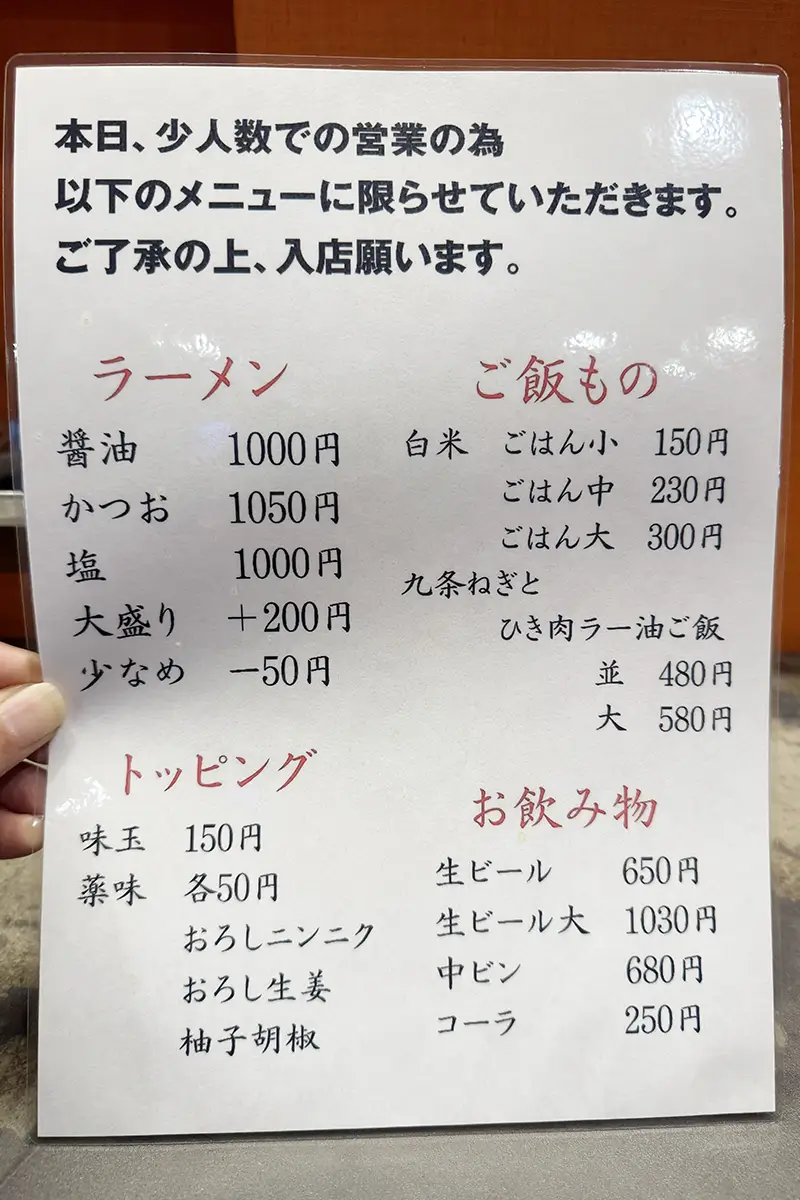 本日、少人数での営業の為
以下のメニューに限らせていただきます。
ご了承の上、入店願います。
ラーメン
醤油 1000円
かつお 1050円
塩 1000円
大盛り +200円
少なめ -50円
トッピング
味玉 150円
薬味 各50円
おろしニンニク
おろし生姜
柚子胡椒
ご飯もの
白米 ごはん小 150円
ごはん中 230円
ごはん大 300円
九条ねぎと
ひき肉ラー油ご飯
並 480円
大 580円
お飲み物
生ビール 650円
生ビール大 1030円
中ビン 680円
コーラ 250円